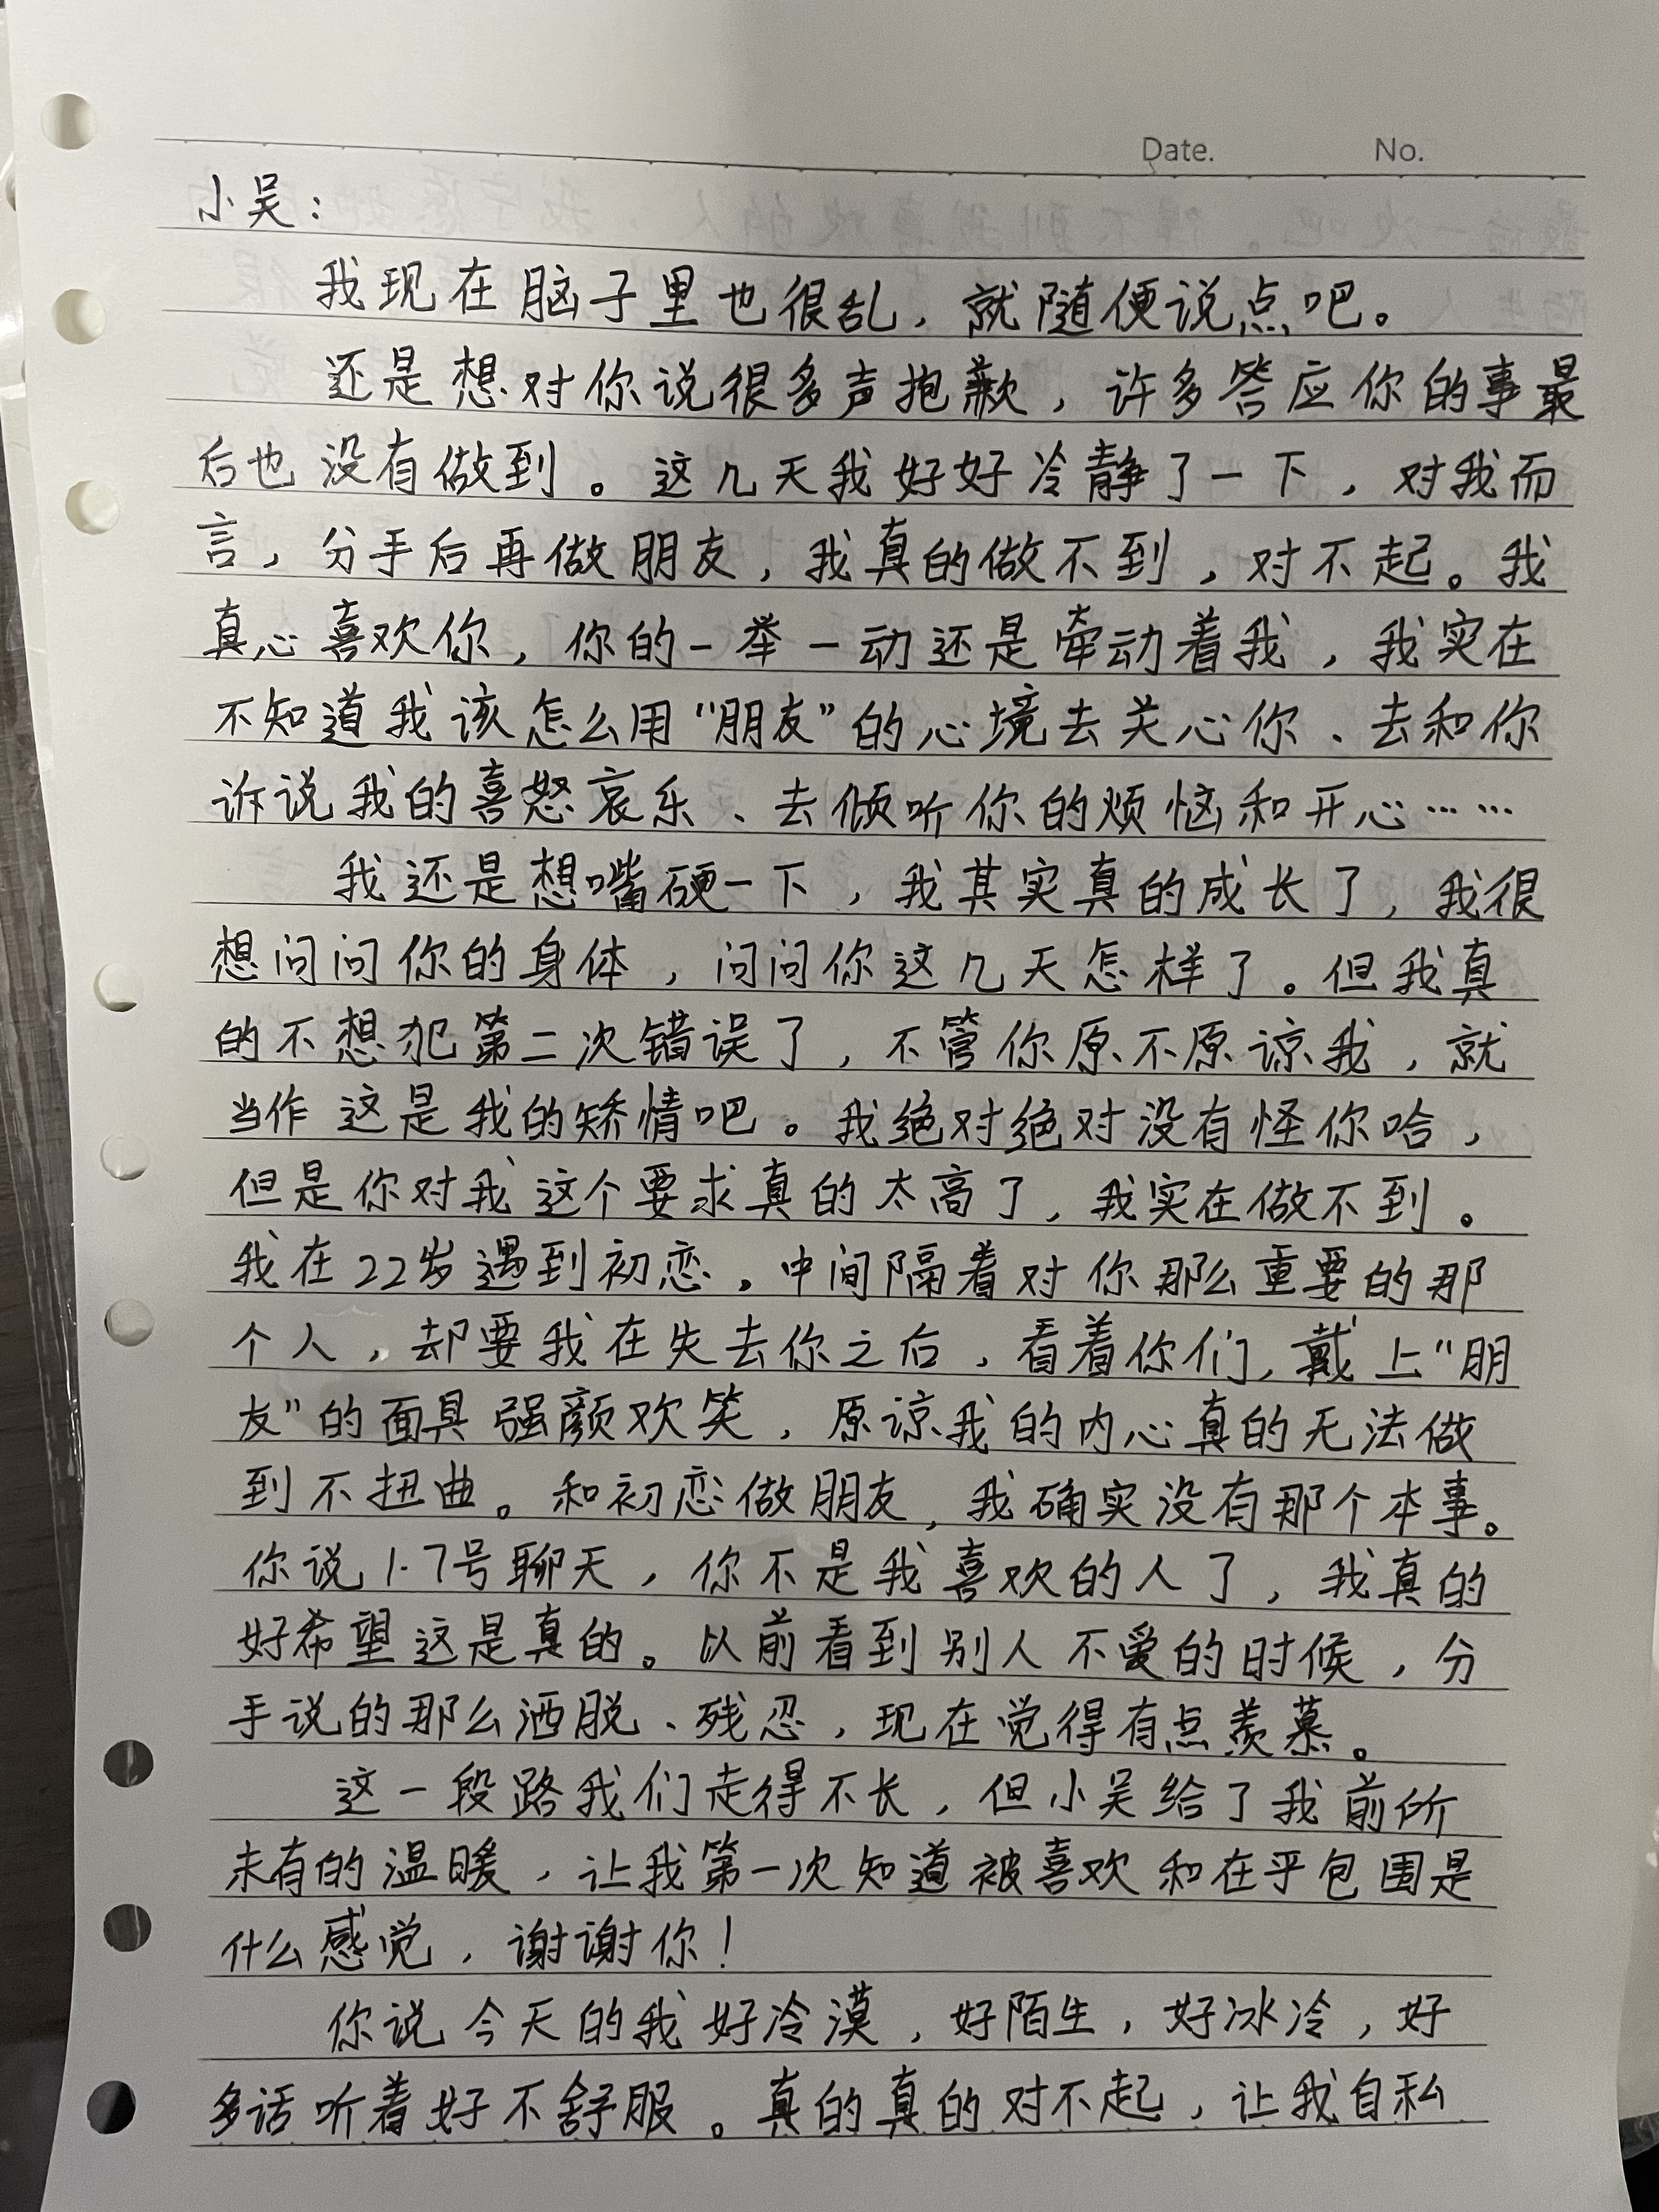 Date. No.
小吴：
我现在脑子里也很乱，就随便说点吧。
还是想对你说很多声抱歉，许多答应你的事最
后也没有做到。这几天我好好冷静了一下，对我而
言，分手后再做朋友，我真的做不到，对不起。我
真心喜欢你，你的一举一动还是牵动着我，我实在
不知道我该怎么用“朋友”的心境去关心你、去和你
诉说我的喜怒哀乐、去倾听你的烦恼和开心……
我还是想嘴硬一下，我其实真的成长了，我很
想问问你的身体，问问你这几天怎样了。但我真
的不想犯第二次错误了，不管你原不原谅我，就
当作这是我的矫情吧。我绝对绝对没有怪你哈，
但是你对我这个要求真的太高了，我实在做不到。
我在22岁遇到初恋，中间隔着对你那么重要的那
个人，却要我在失去你之后，看着你们，戴上“朋
友”的面具强颜欢笑，原谅我的内心真的无法做
到不扭曲。和初恋做朋友，我确实没有那个本事。
你说1.7号聊天，你不是我喜欢的人了，我真的
好希望这是真的。以前看到别人不爱的时候，分
手说的那么洒脱、残忍，现在觉得有点羡慕。
这一段路我们走得不长，但小吴给了我前所
未有的温暖，让我第一次知道被喜欢和在乎包围是
什么感觉，谢谢你！
你说今天的我好冷漠，好陌生，好冰冷，好
多话听着好不舒服。真的真的对不起，让我自私